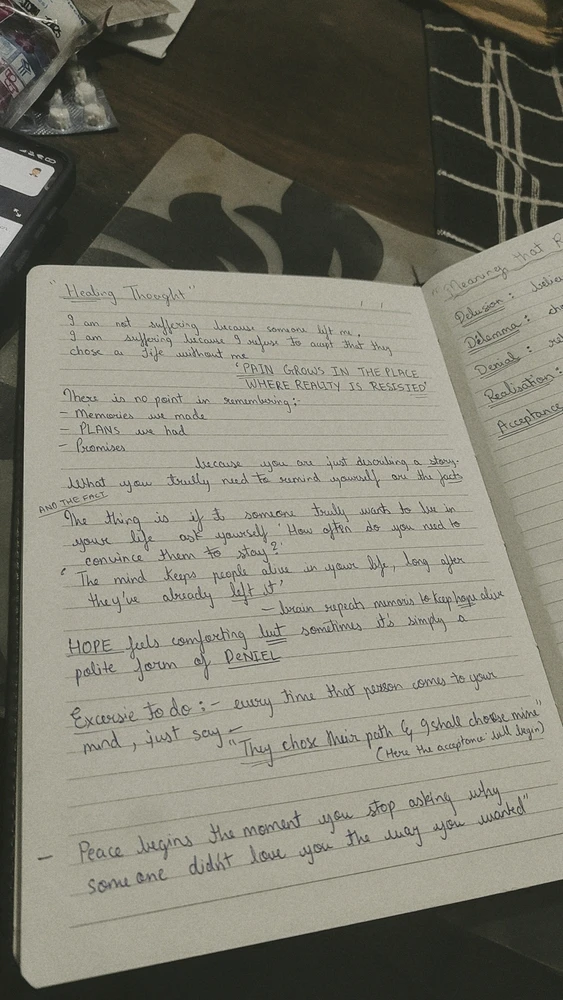 "Healing Thought"
I am not suffering because someone left me.
I am suffering because I refuse to accept that they
chose a life without me
'PAIN GROWS IN THE PLACE
WHERE REALITY IS RESISTED'
There is no point in remembering :-
- Memories we made
- PLANS we had
- Promises
because you are just describing a story.
What you trully need to remind yourself are the facts
AND THE FACT
The thing is if someone truly wants to be in
your life ask yourself 'How often do you need to
convince them to stay?'
'The mind keeps people alive in your life, long after
they've already left it'
- brain repeats memoris to keep hope alive
HOPE feels comforting but sometimes it's simply a
polite form of DeNIEL
Excersie to do :- every time that person comes to your
mind, just say -
"They chose their path & I shall choose mine"
(Here the acceptance will begin)
- Peace begins the moment you stop asking why
someone didn't love you the way you wanted"
"Meanings that
Delusion :
Delemma :
Denial :
Realisation :
Acceptance